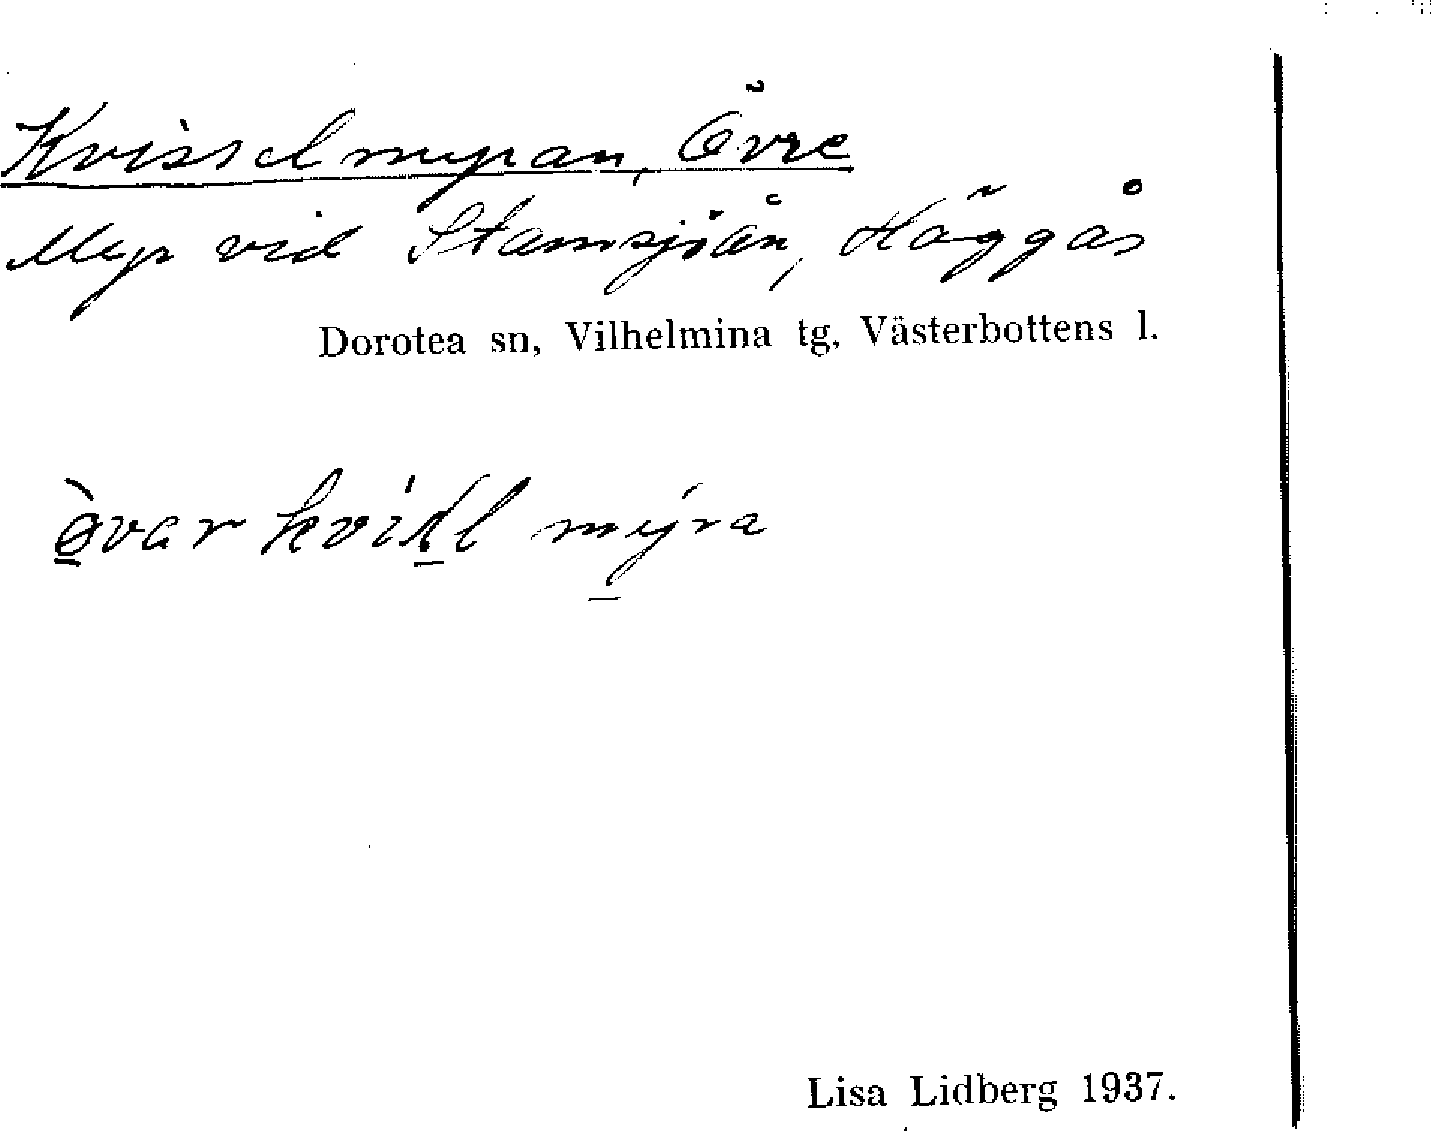 Kvisselmyran, Övre
Myr vid Stamsjöån, Häggås
Dorotea sn, Vilhelmina tg, Västerbottens l.
mỳra
Lisa Lidberg 1937.